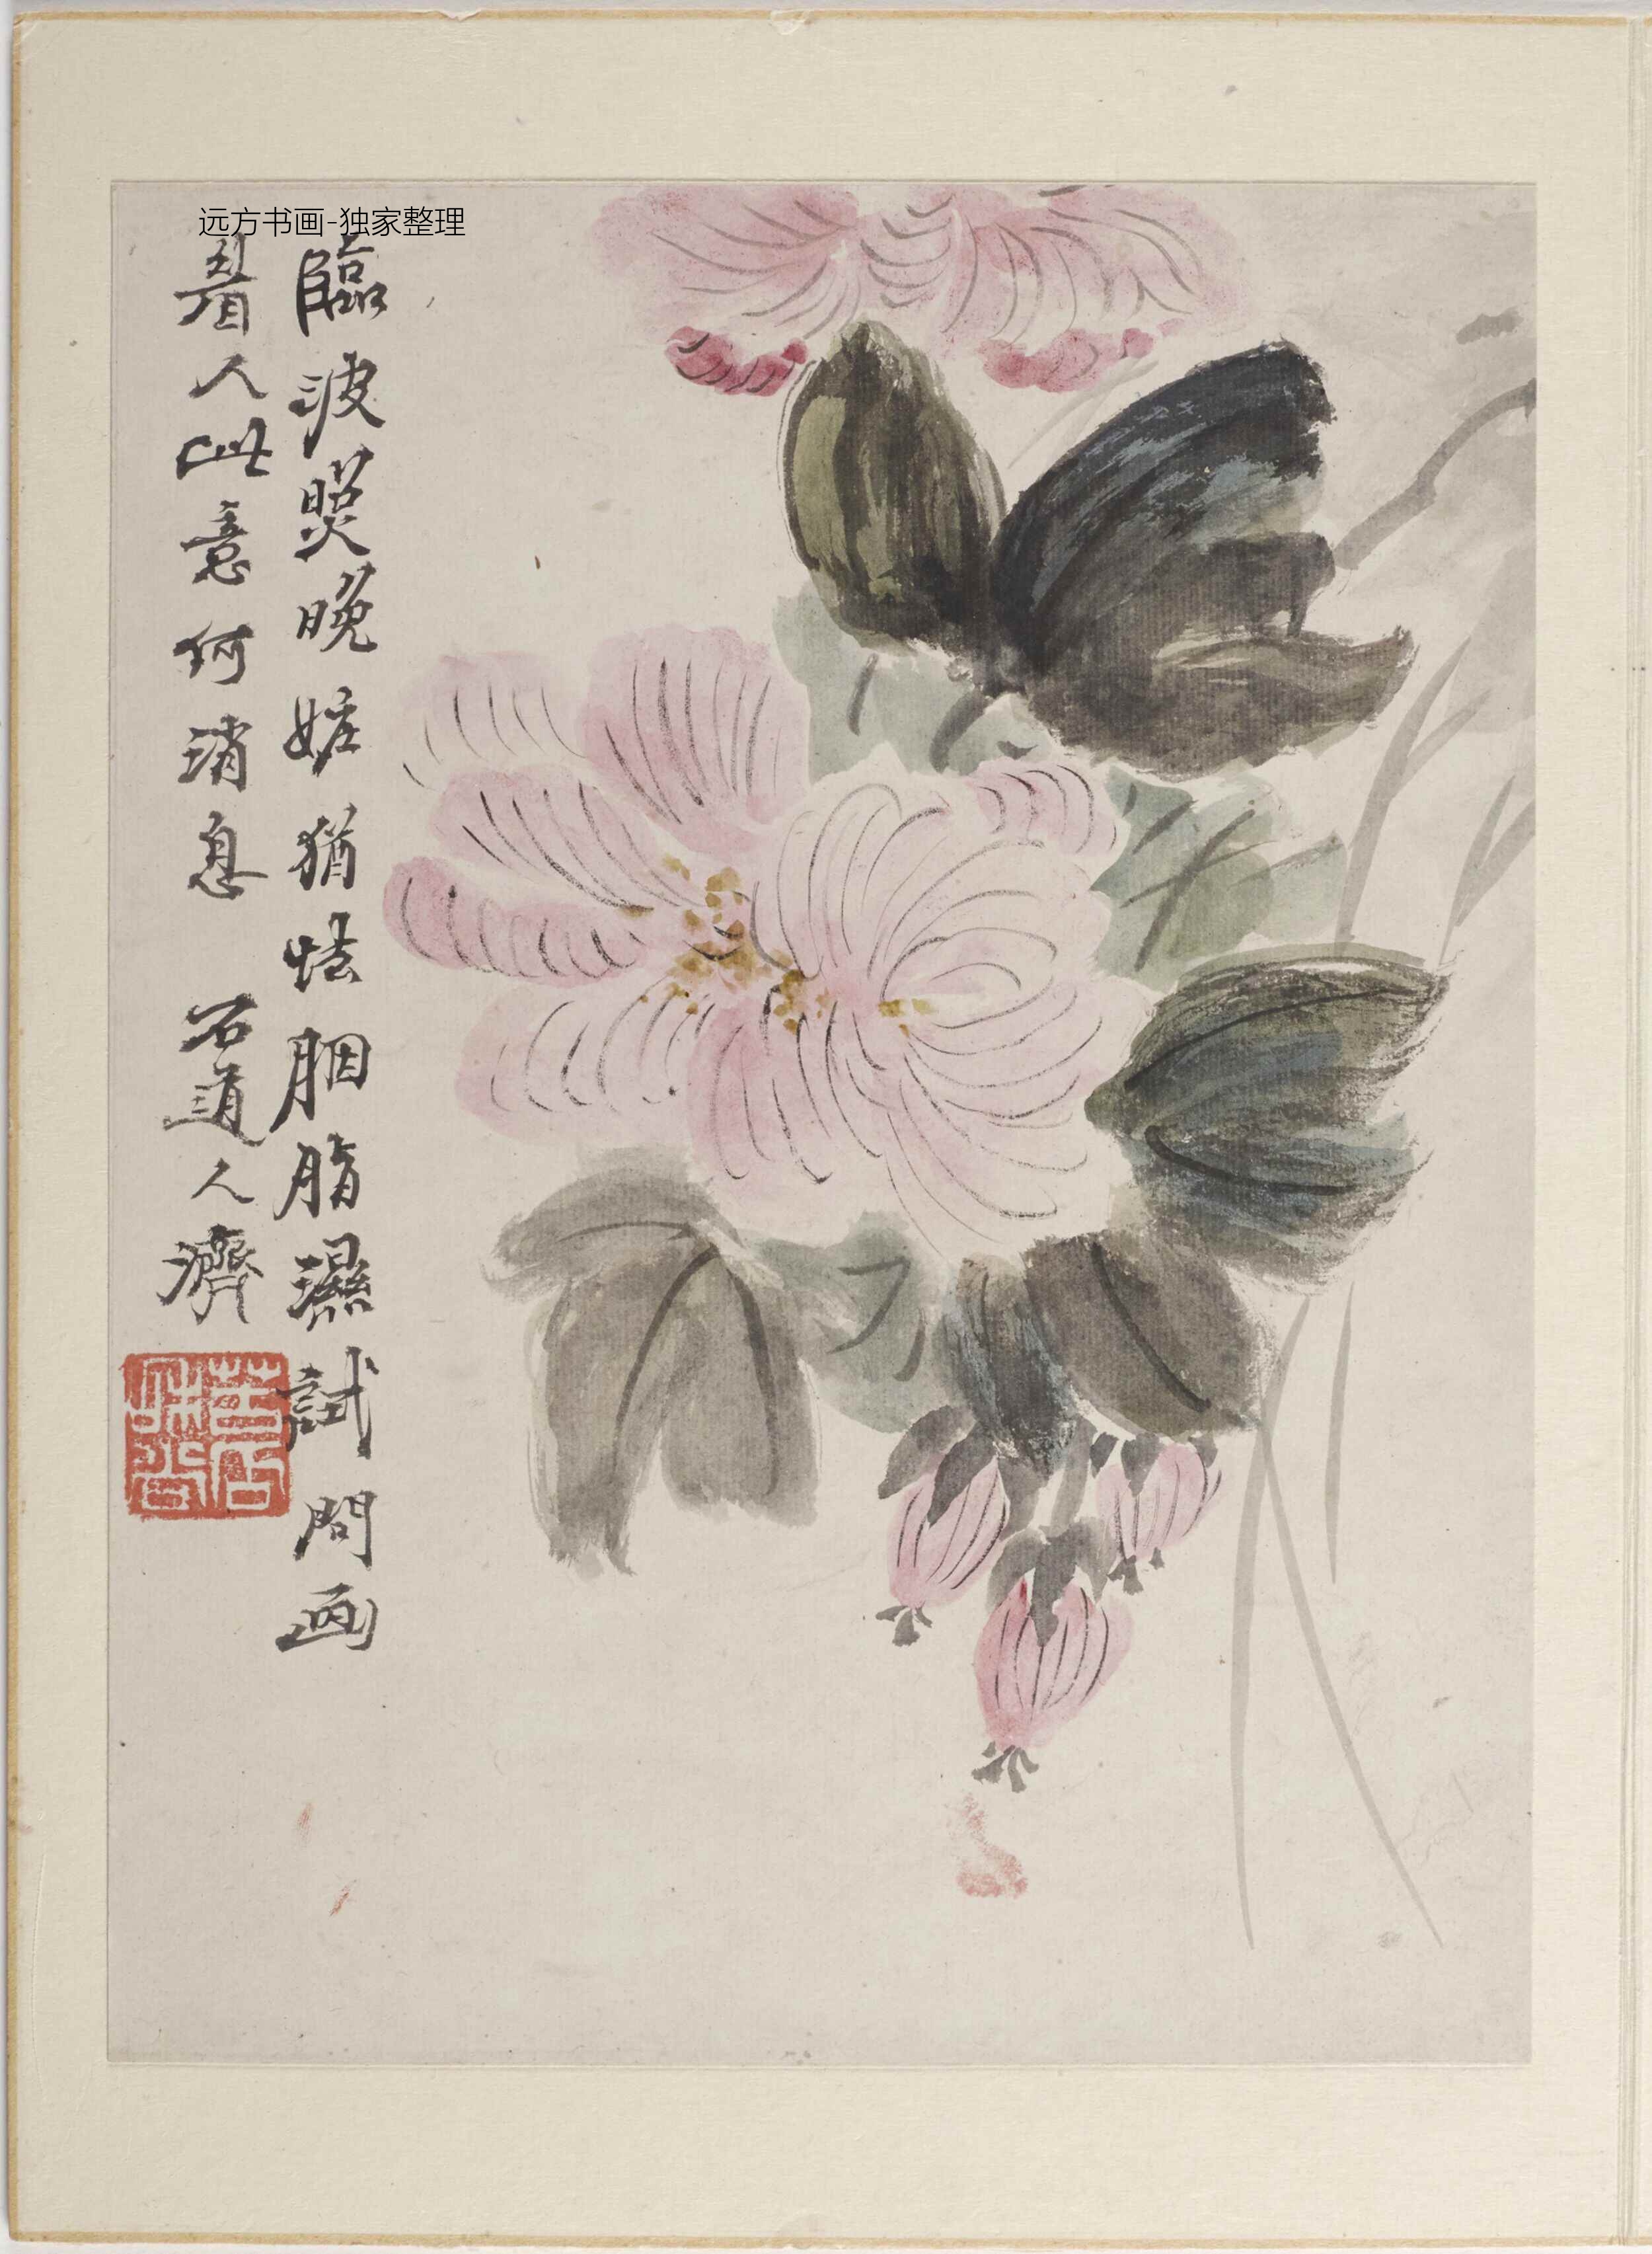 远方书画-独家整理
臨波照晚妝猶怯胭脂濕試問画
着人此意何消息
石道人濟